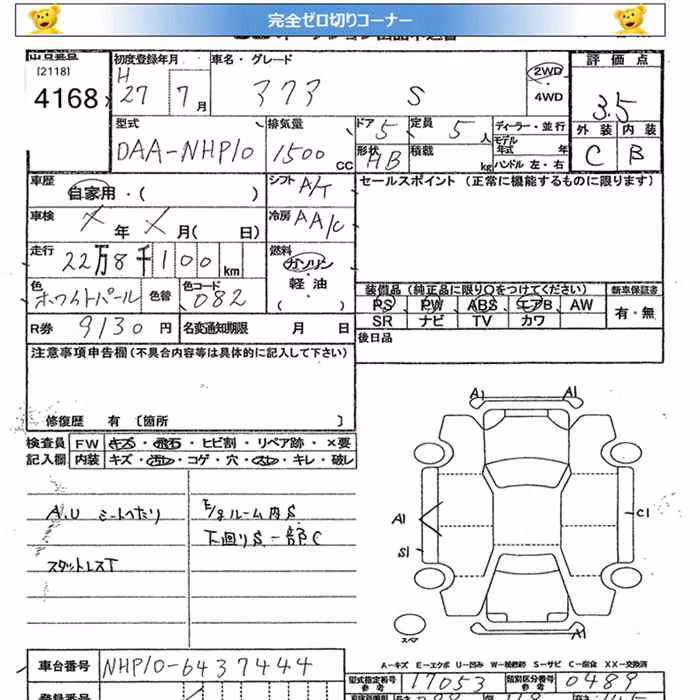 完全ゼロ切りコーナー
[2118]
4168
初度登録年月
H
27 7月
車名・グレード
アクア S
2WD
4WD
評価点
3.5
外装 内装
C B
型式
DAA-NHP10
排気量
1500 CC
ドア 5
定員 5人
ディーラー・並行
モデル年式 年
形状 HB
積載 kg
ハンドル 左・右
車歴
自家用・( )
シフト A/T
セールスポイント (正常に機能するものに限ります)
車検
年 月( 日)
冷房 AA/C
走行
22万8千100km
燃料
ガソリン
軽油
( )
色
ホワイトパール
色替
色コード
082
装備品(純正品に限り○をつけてください)
新車保証書
PS PW ABS エアB AW
有・無
SR ナビ TV カワ
R券 9130円
名変通知期限 月 日
後日品
注意事項申告欄(不具合内容等は具体的に記入して下さい)
修復歴 有 〔箇所 〕
検査員
記入欄
FW キズ・飛石・ヒビ割・リペア跡・×要
内装 キズ・汚れ・コゲ・穴・スレ・キレ・破レ
A.U シートへたり
E/gルーム内S
下回りS 一部C
スタットレスT
A1 A1
A1
S1
C1
A1
スペア
A−キズ E−エクボ U−凹み W−補修跡 S−サビ C−腐食 XX−交換済
車台番号
NHP10-6437444
型式指定番号
参考
17053
類別区分番号
参考
0489